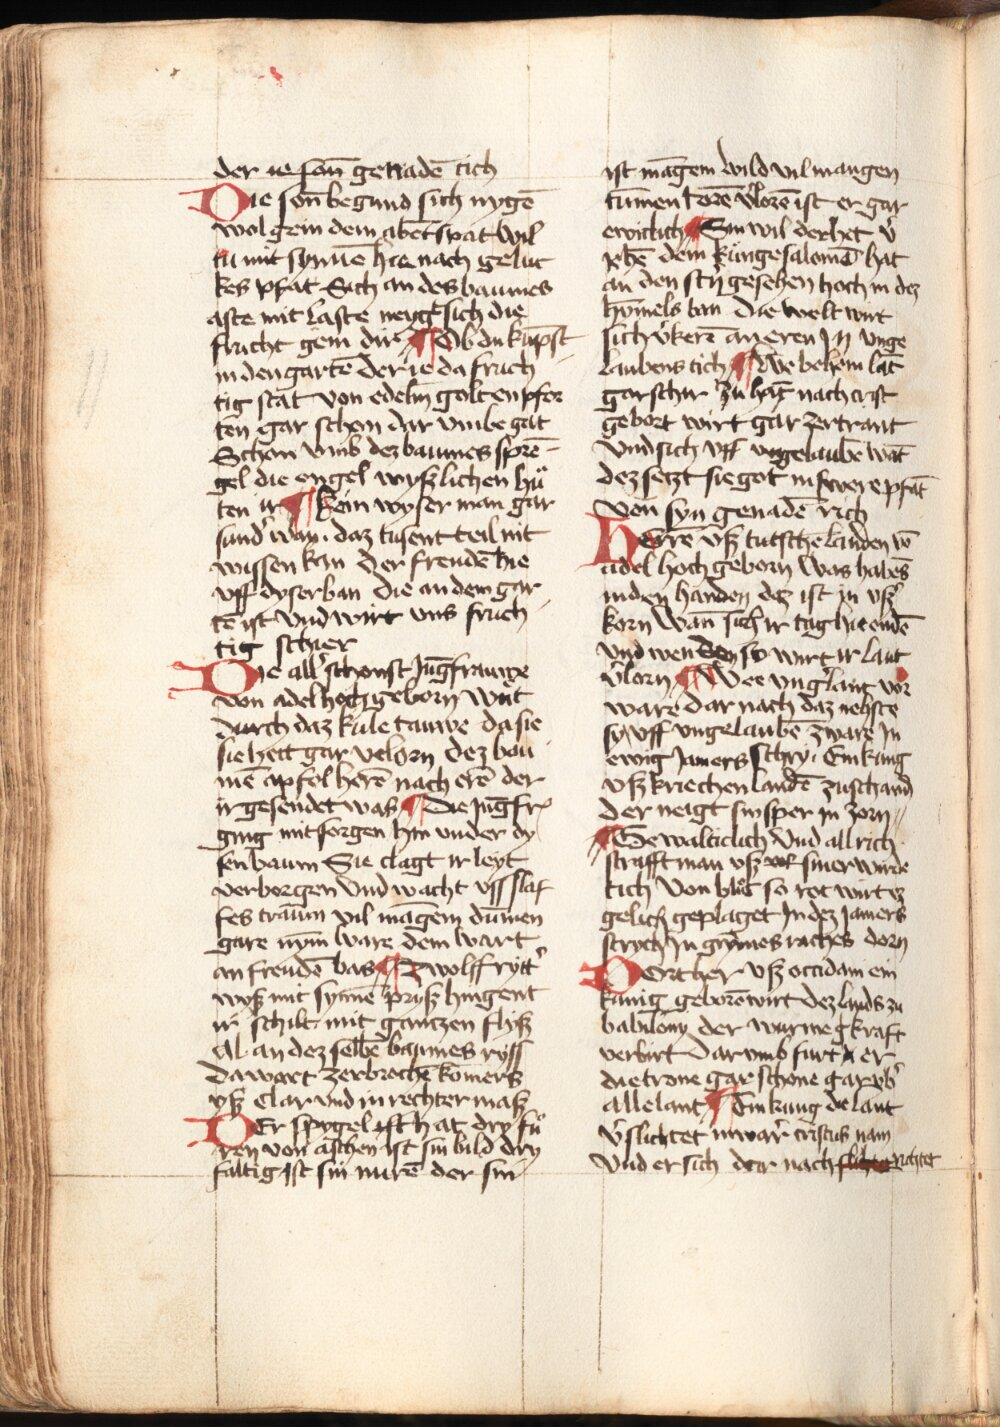 der ie son genadē rich
Die son begund sich nygē
wol gein dem abētspat wil
tu mit synnē hie nach geluc
kes pfat Sich an des baumes
aste mit laste neygt sich die
frucht gein dir ¶ Ob du kūpst
in den gartē der ie da fruch
tig stat von edelm golt en pfor
ten gar schon dar vmbe gat
Schon vmb dez baumes sprē
gel die engel wyßlichen hů
ten ir ¶ kein wyser man gar
sund' wan daz tusent teil nit
wissen kan der freudē hie
vff dyser ban die an dem gar
tē ist vnd wirt vns fruch
tig schier
Die all' schonst Jūgfrauwe
von adel hoch geborn Wūt
durch daz kule tauwe da sie
sie hett gar v'lorn dez bou
mē apfel herē nach erē der
ir gesendet was ¶ Die Jūgfr'
ging mit sorgen hin vnder dy
sen baum Sie clagt ir leyt
verborgen vnd wacht vff slaf
fes traum vil māgem dūmen
gare nym ware dem wart
an freudē bas ¶ D wolff rytt'
wyß mit synnē pryß hingent
ir schilt mit gantzen flyß
Al an dez selbē baumes ryß
da wart zerbrochē komers
yß Clar vnd in rechter maß
Der spygel ist hat dry fů
ren von aschen ist sin bild dry
faltig Ist sin nurē der sin
ist māgem wild vil mangen
tūmen torē v'lorē ist er gar
ewiclich ¶ Sin wil der het v'
jehē dem kūnge salomō hat
an den st'n gesehen hoch in dez
hymels ban die welt wirt
sich v'kerē an eren Jn vnge
laubens rich ¶ We behem lāt
gar schir zu hāt nach crist
geburt wirt gar zertrant
vnd sich vff vngelaubē wāt
dez setzt sie got in swere pfāt
von syn genadē rich
Herrē vß tutsche landen vō
adel hoch geborn Was habēs
in den handen dez ist in vß'
korn Wan sich ir tag hie endē
vnd wen den so wirt ir laut
v'lorn ¶ Wee vng'lant vor
ware dar nach daz nehste
sy vff vngelaubē zware Jn
ewig jamers schry Ein kūng
vß kriechen landē zuschand
der neigt sin sper in zorn
¶ Gewalticlich vnd all rich
strafft man vß siner wirde
rich von blůt so rot wirt ez
gelich geplaget Jn dez jamers
strych Jn grymes raches dorn
Dort her vß occidam ein
kūnig geborē wirt dez lands zu
babilony der wurmeg kraft
verbirt dar vmb furt er
die trone gar schone gar vb'
alle lant ¶ Ein kūng de lant
v'slichtet inwar cristus nam
vnd er sich dar nach richtet